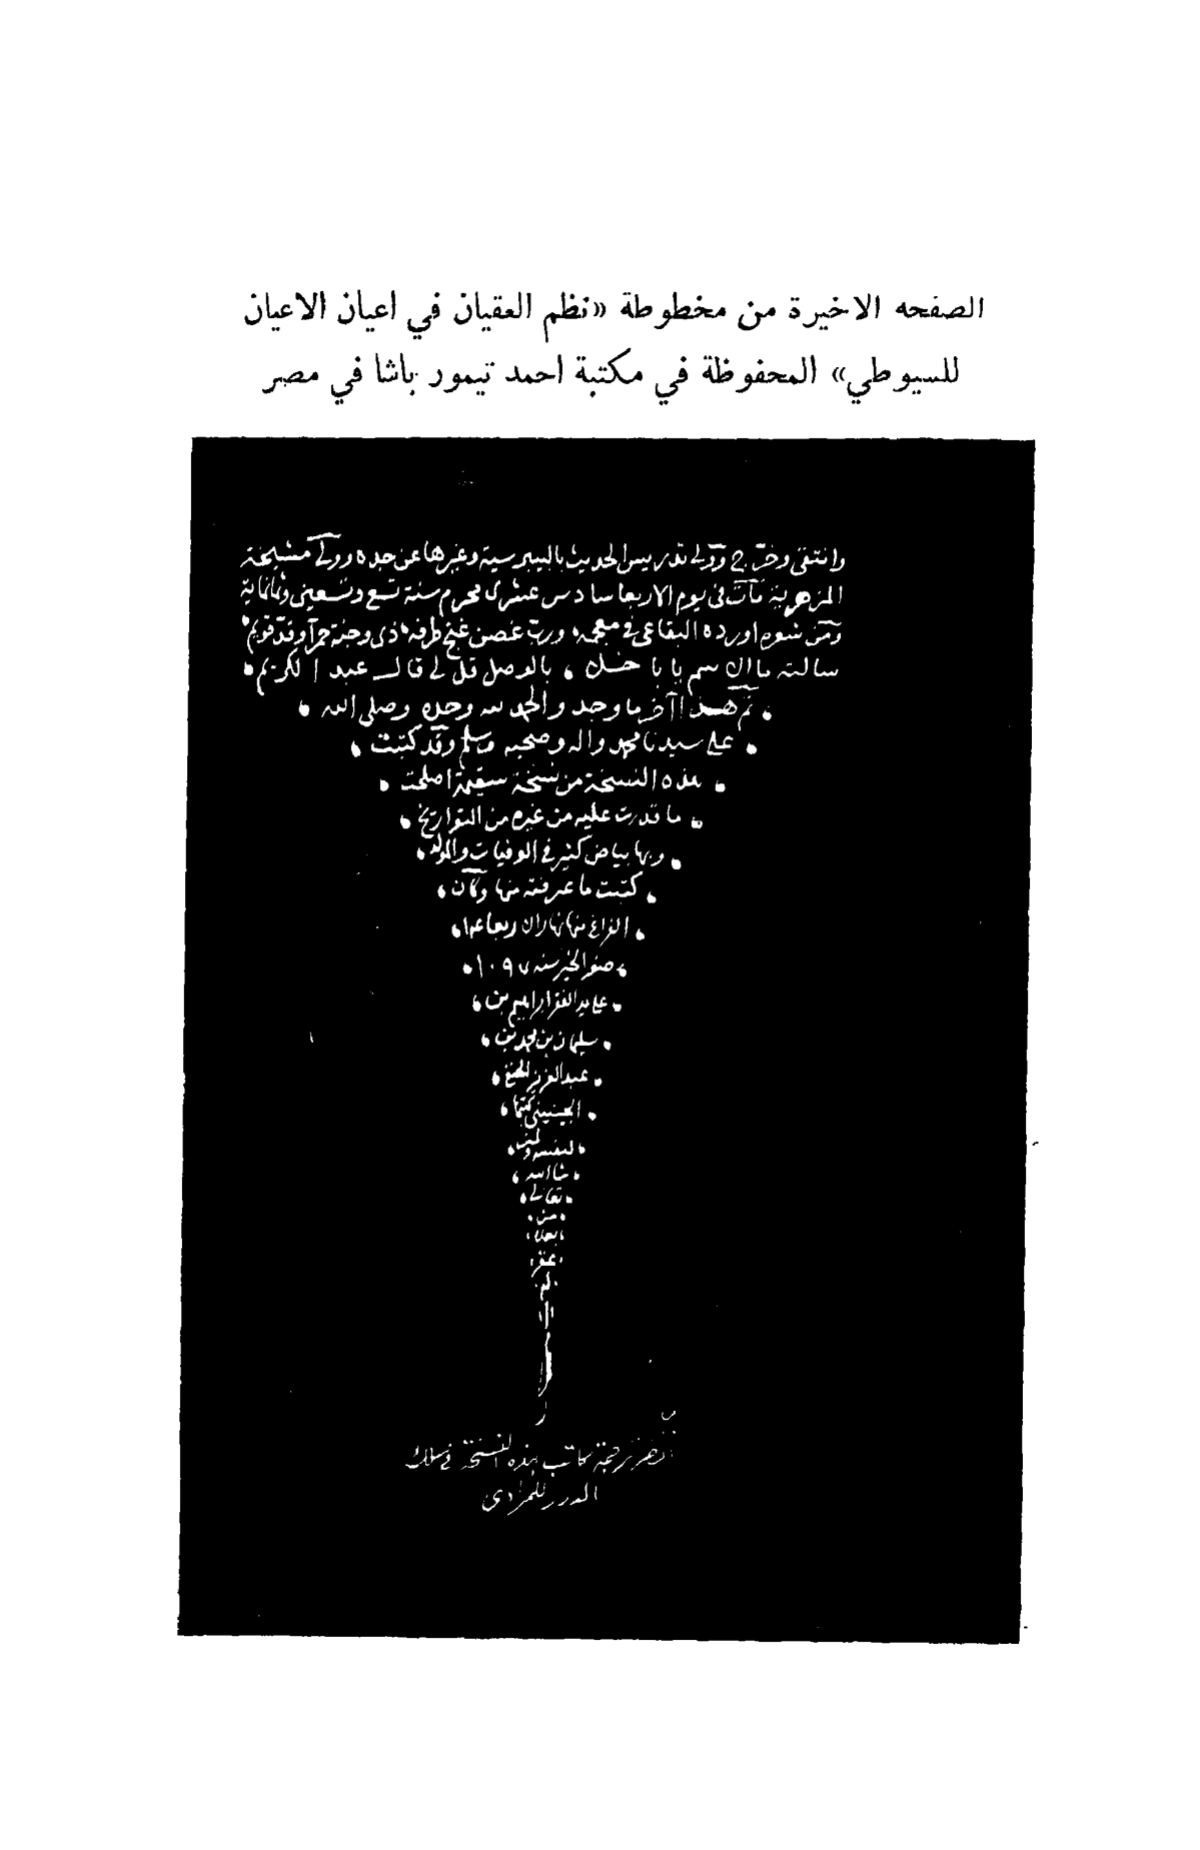 الصفحه الاخيرة من مخطوطة «نظم العقيان في اعيان الاعيان
للسيوطي» المحفوظة في مكتبة احمد تيمور باشا في مصر
وانتقى وخرّج وولى تدريس الحديث بالبيبرسية وغيرها عن جده وولى مشيخة
المزهرية مات فى يوم الاربعا سادس عشرى محرم سنة تسع وتسعين وثمانماية
ومن شعره اورده البقاعى فى معجمه ورب غصن غنج طرفه ذى وجنة حمرا وقد قويم
سالته ما الاسم يا با خل بالوصل قل لى قال عبد الكريم
تم هذا آخر ما وجد والحمد لله وحده وصلى الله
على سيدنا محمد واله وصحبه وسلم وقد كتبت
هذه النسخة من نسخة سقيمة اصلحت
ما قدرت عليه من غيره من التواريخ
وبها بياض كثير فى الوفيات والموالد
كتبت ما عرفته منها وكان
الفراغ منها نهار
صفر الخير سنه ١٠٩٧
على يد الفقير ابراهيم بن
سليمان بن محمد بن
عبد العزيز الحنفى
الجينينى كتبها
لنفسه ولمن
شا الله
تعالى
من
بعده
غفر
انظر ترجمة كاتب هذه النسخة فى سلك
الدرر للمرادى